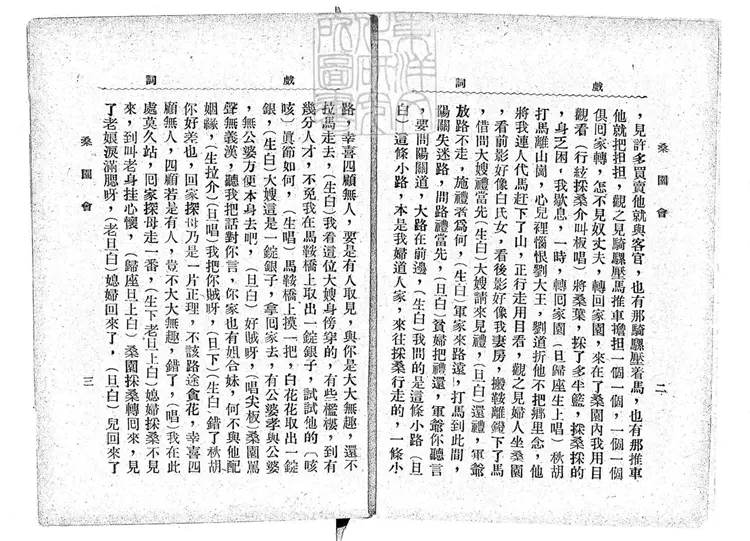 戲詞
桑園會
二
，見許多買賣他就與客官，也有那騎騾壓着馬，也有那推車
他就把担担，觀之見騎騾壓馬推車擔担一個一個，一個一個
俱囘家轉，怎不見奴丈夫，轉囘家園，來在了桑園內我用目
觀看（行絃採桑介叫板唱）將桑葉，採了多半籃，採桑採的
，身乏困，我歇息，一時，轉囘家園（旦歸座生上唱）秋胡
打馬離山崗，心兒裡惱恨劉大王，劉道折他不把鄉里念，他
將我連人代馬赶下了山，正行走用目看，觀之見婦人坐桑園
，看前影好像白氏女，看後影好像我妻房，搬鞍離鐙下了馬
，借問大嫂禮當先（生白）大嫂請來見禮，（旦白）還禮，軍爺
放路不走，施禮者爲何，（生白）軍家來路遠，打馬到此間，
陽關失迷路，問路禮當先，（旦白）貧婦把禮還，軍爺你聽言
，要問陽關道，大路在前邊，（生白）我問的是這條小路（旦
白）這條小路，本是我婦道人家，來往採桑行走的，一條小
戲詞
路，幸喜四顧無人，要是有人取見，與你是大大無趣，還不
拉馬走去，（生白）我看這位大嫂身傍穿的，有些檻褸，到有
幾分人才，不免我在馬鞍橋上取出一錠銀子，試試他的（咳
咳）眞節如何，（生唱）馬鞍橋上摸一把，白花花取出一錠
銀，（生白）大嫂這是一錠銀子，拿囘家去，有公婆孝與公婆
，無公婆方便本身去吧，（旦白）好賊呀，（唱尖板）桑園罵
聲無義漢，聽我把話對你言，你家也有姐合妹，何不與他配
姻緣，（生拉介）（旦唱）我把你賊呀，（旦下）（生白）錯了秋胡
你好差也，囘家探母乃是一片正理，不該路途貪花，幸喜四
顧無人，四顧若是有人，豈不大大無趣，錯了，（唱）我在此
處莫久站，囘家探母走一番，（生下老旦上白）媳婦採桑不見
來，到叫老身挂心懷，（歸座旦上白）桑園採桑轉囘來，見
了老娘淚滿腮呀，（老旦白）媳婦囘來了，（旦白）兒囘來了
桑園會
三